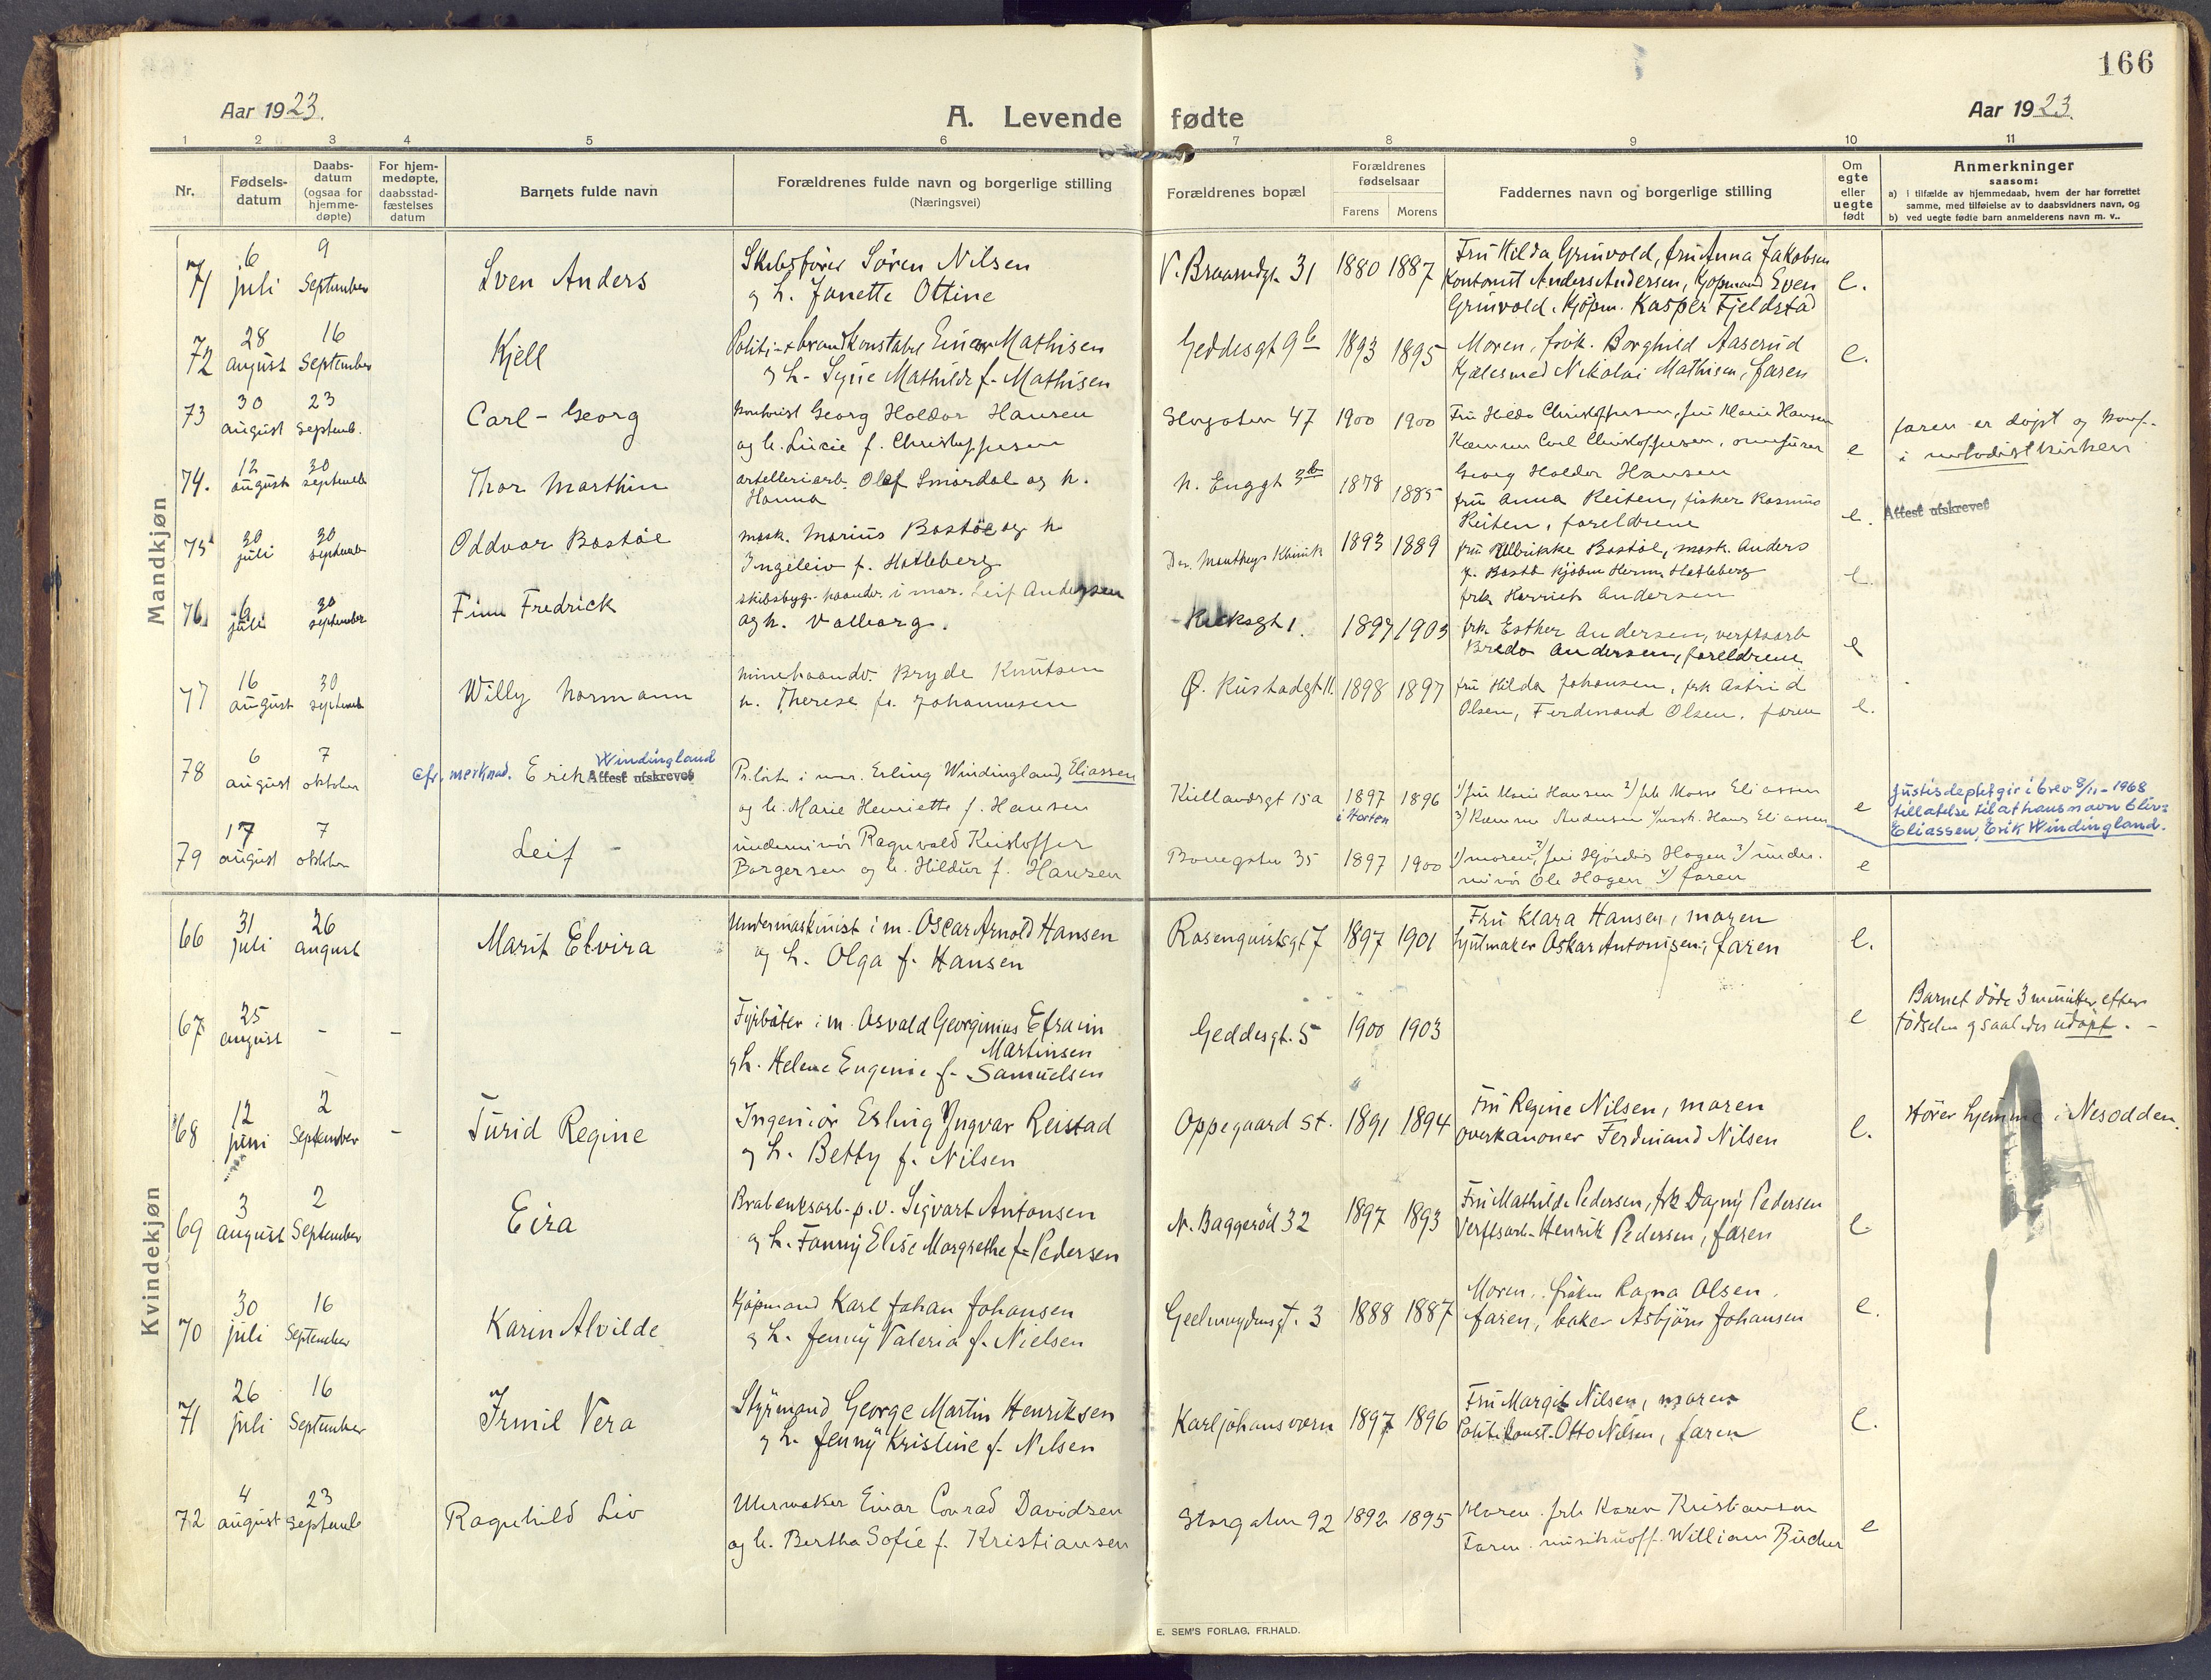 166
Aar 1923.
A. Levende fødte
Aar 1923.
1 2 3 4 5 6 7 8 9 10 11
Nr.
Fødsels-
datum
Daabs-
datum
(ogsaa for
hjemme-
døpte)
For hjem-
medøpte,
daabsstad-
fæstelses
datum
Barnets fulde navn
Forældrenes fulde navn og borgerlige stilling
(Næringsvei)
Forældrenes bopæl
Forældrenes
fødselsaar
Farens Morens
Faddernes navn og borgerlige stilling
Om
egte
eller
uegte
født
Anmerkninger
saasom:
a) i tilfælde av hjemmedaab, hvem der har forrettet
samme, med tilføielse av to daabsvidners navn, og
b) ved uegte fødte barn anmelderens navn m. v..
Mandkjøn
71
6 juli
9 September
Sven Anders
Skibsfører Sören Nilsen
og h. Janette Ottine
31
1880 1887
Fru Hilda Grünvold, fru Anna Jakobsen
Kontorist Anders Andersen, Kjøpmand Even
Grünvold. Kjöpm. Kasper Fjeldstad
e.
72
28 august
16 September
Kjell
Politi- & brandkonstabel Einar Mathisen
og h. Signe Mathilde f. Mathisen
Geddesgt 9b
1893 1895
Moren, frøk. Borghild Aaserud
Nikolai Mathisen, faren
e.
73
30 august
23 septemb.
Carl - Georg
Georg Haldor Hansen
og h. Lucie f. Christoffersen
Storgaten 47
1900 1900
Fru Hilda Christoffersen, fru Marie Hansen
Carl Christoffersen,
Georg Haldor Hansen
e
faren er døpt og konf.
i metodistkirken
74.
12 august
30 septemb
Thor Marthin
artilleriarb. Olaf Smørdal og h.
Hanna
N. Enggt 3b
1878 1885
fru Anna Reiten, fisker Rasmus
Reiten, foreldrene
e.
Attest utskrevet
75
30 juli
30 septemb
Oddvar Bastøe
mask. Marius Bastøe og h
Ingeleiv f. Hatleberg
Klinik
1893 1889
fru Ulrikke Bastöe, mask. Anders
Hatleberg
frk Andersen
e.
76
6 juli
30 september
Finn Fredrick
skibsbyg. haandv. i mar. Leif Andersen
og h. Valborg.
1.
1897 1903
frk Esther Andersen, verftsarb
Bredo Andersen, foreldrene
e
77
16 august
30 septemb
Willy Normann
minehaandv. Bryde Knutsen
h. Therese f. Johannesen
Ø. Rustadgt 11.
1898 1897
fru Hilda Johansen, frk Astrid
Olsen, Ferdinand Olsen, faren
e.
78
6 august
7 oktober
cfr. merknad.
Erik Windingland
Attest utskrevet
i mar. Erling Windingland, Eliassen
og h. Marie Henriette f. Hansen
Kiellandsgt 15a
1897 1896
i Horten
1) fru Marie Hansen 2) frk Eliassen
3) Andersen 4) mask. Hans Eliassen
e
Justisdeptet gir i brev 8/11-1968
tillatelse til at hans navn blir:
Eliassen, Erik Windingland.
79
17 august
7 oktober
Leif -
underminör Ragnvald Kristoffer
Borgersen og h. Hildur f. Hansen
35
1897 1900
1) moren, 2) fru Hjördis Hagen 3) under-
minör Ole Hagen 4) faren
e
Kvindekjøn
66
31 juli
26 august
Marit Elvira
Undermaskinist i m. Oscar Arnold Hansen
og h. Olga f. Hansen
Rosenquistsgt 7
1897 1901
Fru Klara Hansen, moren
hjulmaker Oskar Antonisen, faren
e.
67
25 august
- -
Fyrböter i m. Osvald Georginius Efraim
Martinsen
og h. Helene Eugenie f. Samuelsen
Geddesgt. 5
1900 1903
e
Barnet döde 3 minutter efter
födselen og saaledes udöpt. -
68
12 juni
2 September
-
Turid Regine
Ingeniör Erling Yngvar Reistad
og h. Betty f. Nilsen
Oppegaard St.
1891 1894
Fru Regine Nilsen, moren
overkanoner Ferdinand Nilsen
e.
Hörer hjemme i Nesodden.
69
3 august
2 September
Eira
Sigvart Antonsen
og h. Fanny Elise Margrethe f. Pedersen
N. Baggeröd 32
1897 1893
Fru Mathilde Pedersen, frk Dagny Pedersen
Verftsarb. Henrik Pedersen, faren
e.
70
30 juli
16 September
Karin Alvilde
Kjøpmand Karl Johan Johansen
og h. Jenny Valeria f. Nielsen
Geelmuydensgt. 3
1888 1887
Moren, fröken Ragna Olsen.
faren, baker Asbjörn Johansen
e.
71
26 juli
16 September
Irmil Vera
Styrmand George Martin Henriksen
og h. Jenny Kristine f. Nilsen
Karljohansvern
1897 1896
Fru Margit Nilsen, moren
Politikonst. Otto Nilsen, faren
e.
72
4 august
23 septemb
Ragnhild Liv
Urmaker Einar Conrad Davidsen
og h. Bertha Sofie f. Kristiansen
Storgaten 92
1892 1895
Moren. frk Karen Kristiansen
Faren. William Bücher
e
E. SEM'S FORLAG, FR.HALD.